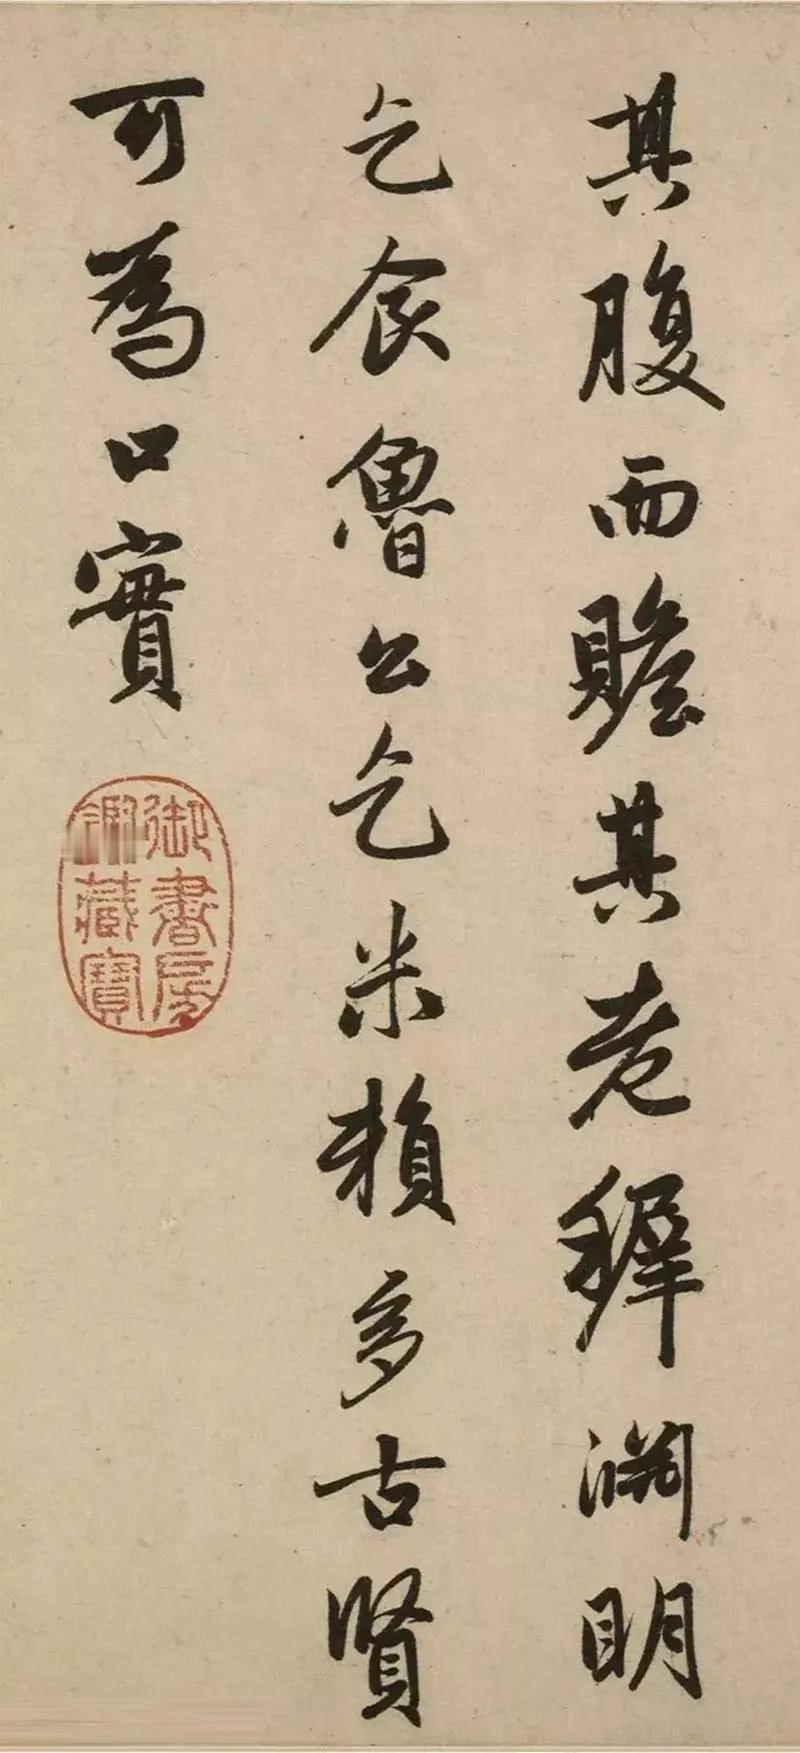 其腹而贍其老穉淵明
乞食魯公乞米賴多古賢
可為口實
御書房
鑑藏寶